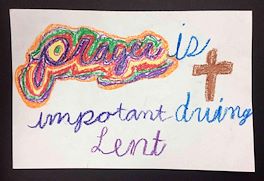 prayer is
impotant druing
Lent